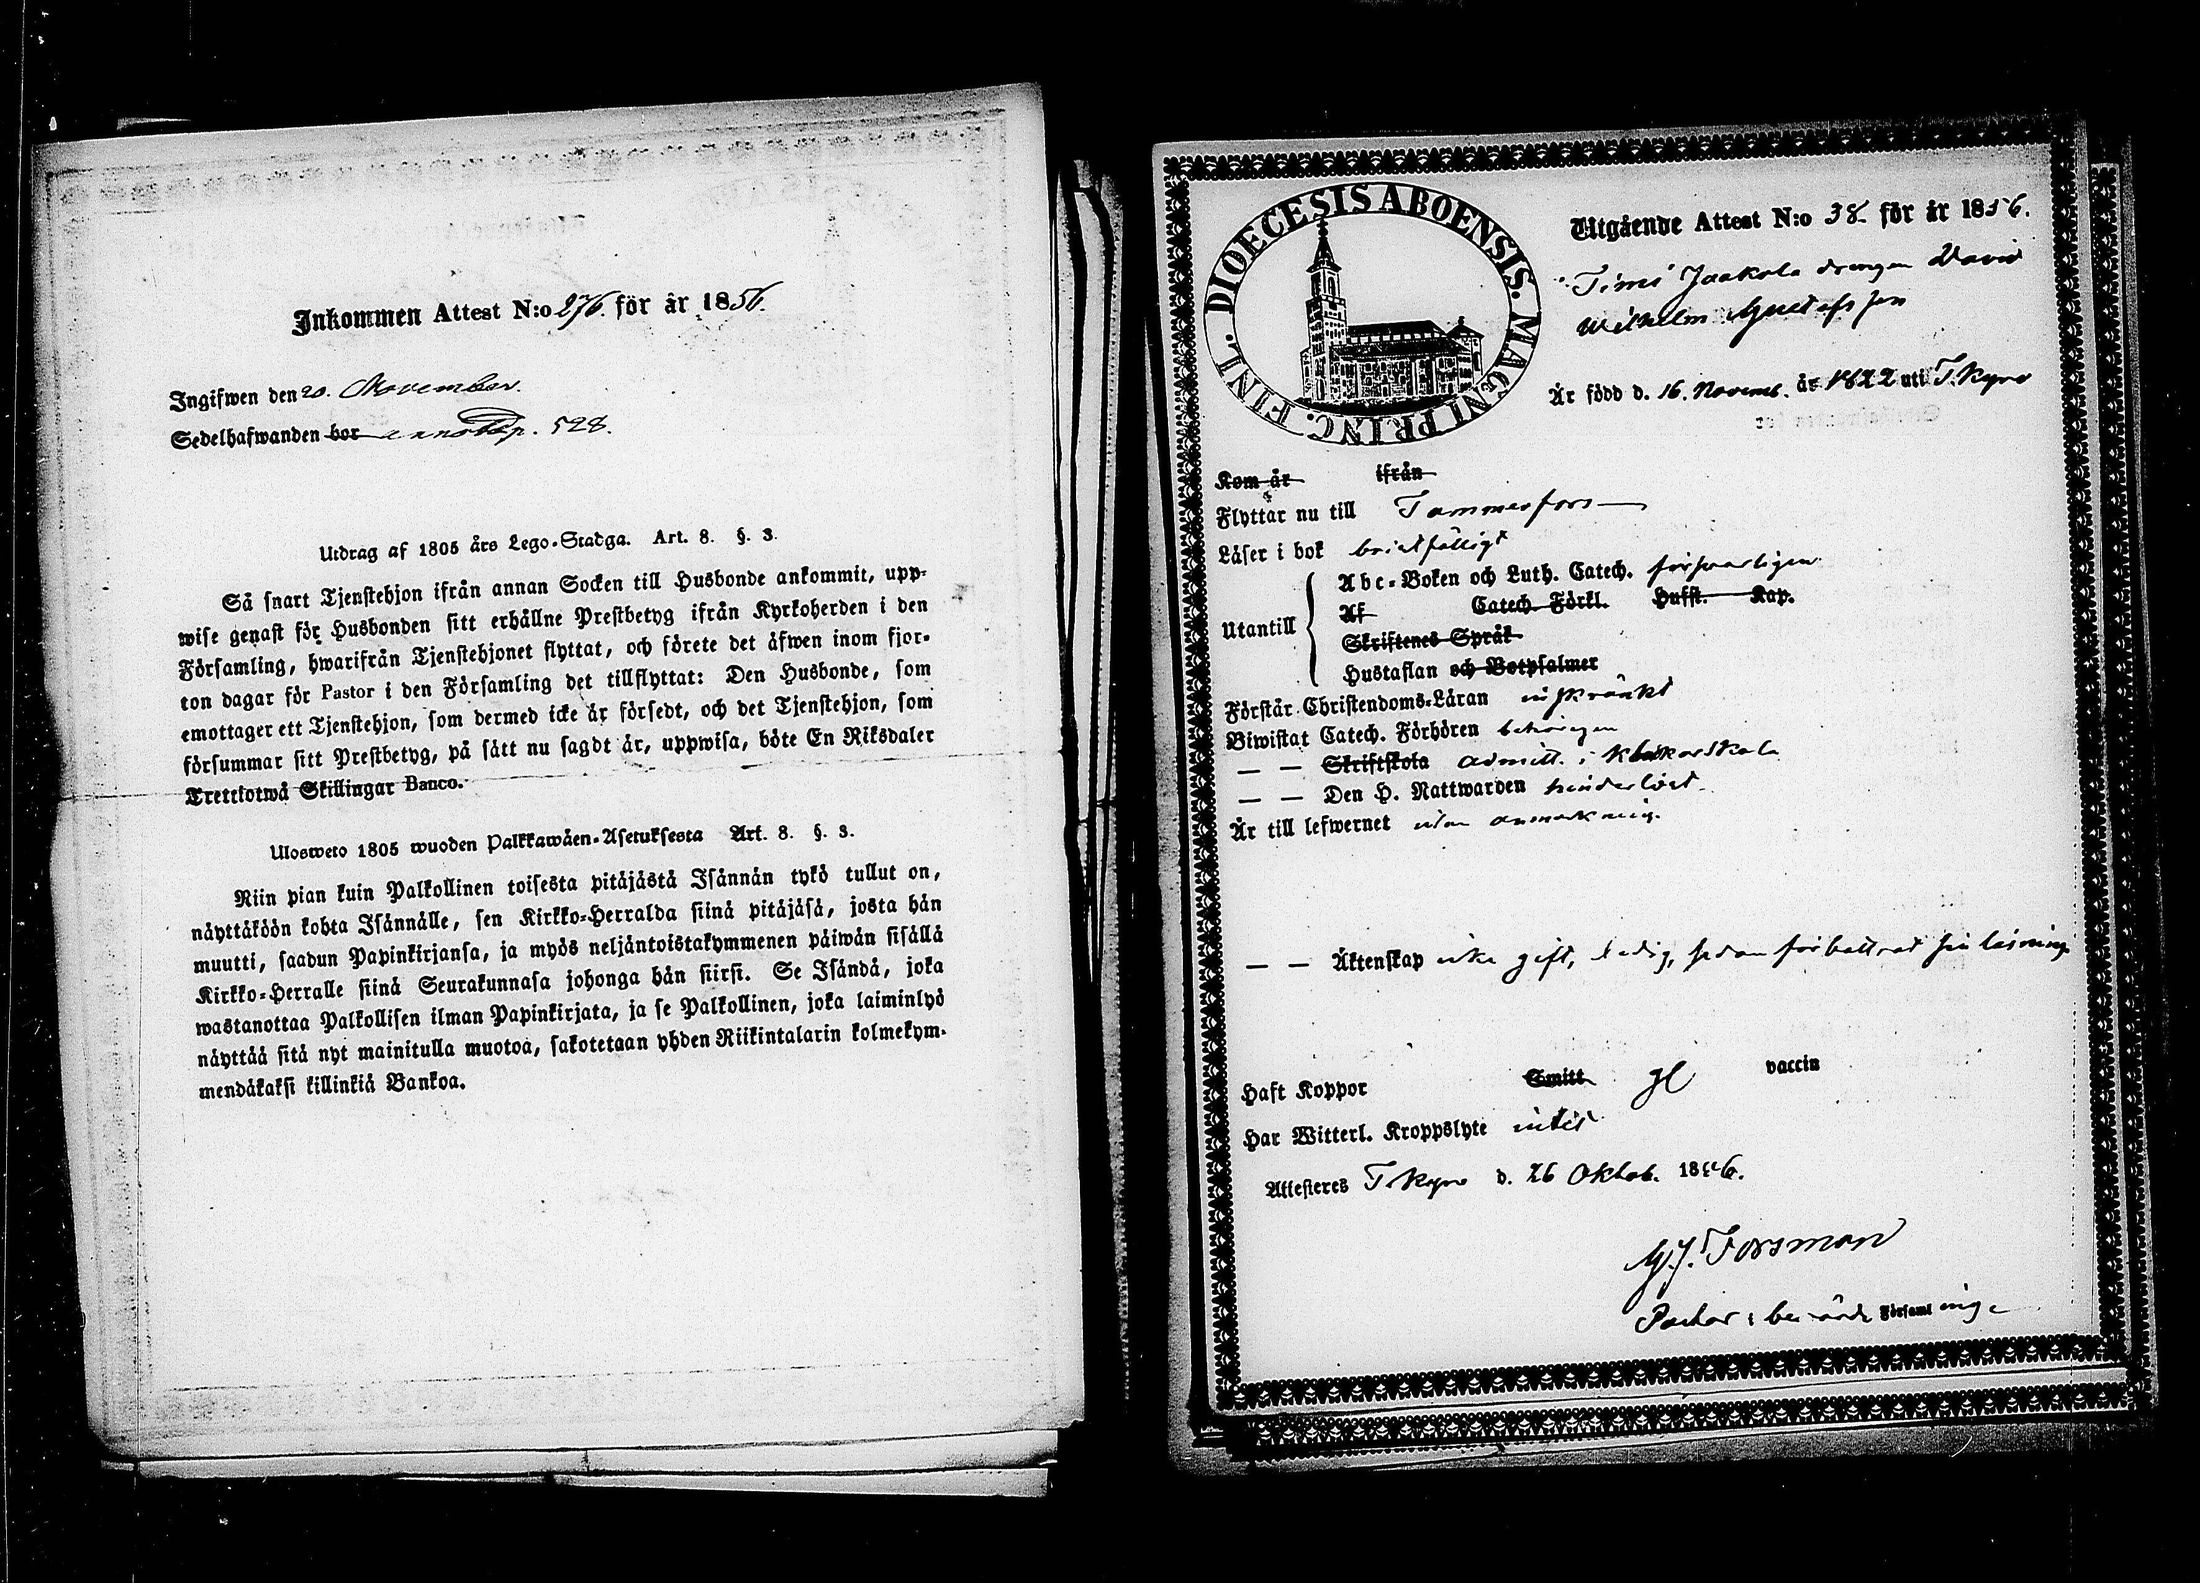 Inkommen Attest N:o 276. för år 1856.
Ingifwen den 20. November.
Sedelhafwanden bor annot. p. 528.
Utdrag af 1805 års Lego-Stadga. Art. 8. §. 3.
Så snart Tjenstehjon ifrån annan Socken till Husbonde ankommit, upp-
wise genast för Husbonden sitt erhållne Prestbetyg ifrån Kyrkoherden i den
Församling, hwarifrån Tjenstehjonet flyttat, och förete det äfwen inom fjor-
ton dagar för Pastor i den Församling det tillflyttat: Den Husbonde, som
emottager ett Tjenstehjon, som dermed icke är försedt, och det Tjenstehjon, som
försummar sitt Prestbetyg, på sätt nu sagdt är, uppwisa, böte En Riksdaler
Trettiotwå Skillingar Banco.
Ulosweto 1805 wuoden Palkkawäen-Asetuksesta Art. 8. §. 3.
Niin pian kuin Palkollinen toisesta pitäjästä Isännän tykö tullut on,
näyttäköön kohta Isännälle, sen Kirkko-Herralda siinä pitäjäsä, josta hän
muutti, saadun Papinkirjansa, ja myös neljäntoistakymmenen päiwän sisällä
Kirkko-Herralle siinä Seurakunnasa johonga hän siirsi. Se Isändä, joka
wastanottaa Palkollisen ilman Papinkirjata, ja se Palkollinen, joka laiminlyö
näyttää sitä nyt mainitulla muotoa, sakotetaan yhden Riikintalarin kolmekym-
mendäkaksi killinkiä Bankoa.
DIOECESIS ABOENSIS. MAGNI PRINC. FINL.
Utgående Attest N:o 38 för år 1856.
Timi Jaakola drengen David
Wilhelm Gustafsson
Är född d. 16. Novemb. år 1822 uti T.kyro
Kom år ifrån
Flyttar nu till Tammerfors
Läser i bok bristfälligt
Utantill
Abc-Boken och Luth. Catech. försvarligen
Af Catech. Förkl. Hufst. Kap.
Skriftenes Språk
Hustaflan och Botpsalmer
Förstår Christendoms-Läran inskränkt
Biwistat Catech. Förhören behörigen
— — Skriftskola admitt. i klåkarskola
— — Den H. Nattwarden hinderlöst
Är till lefwernet utan anmärkning.
— — Äktenskap icke gift, ledig, sedan förbättrat sin läsning
Haft Koppor Smitt gl vaccin
Har Witterl. Kroppslyte intet
Attesteres T.kyro d. 26 Oktob. 1856.
G.J. Forsman
Pastor i berörde Församlinge